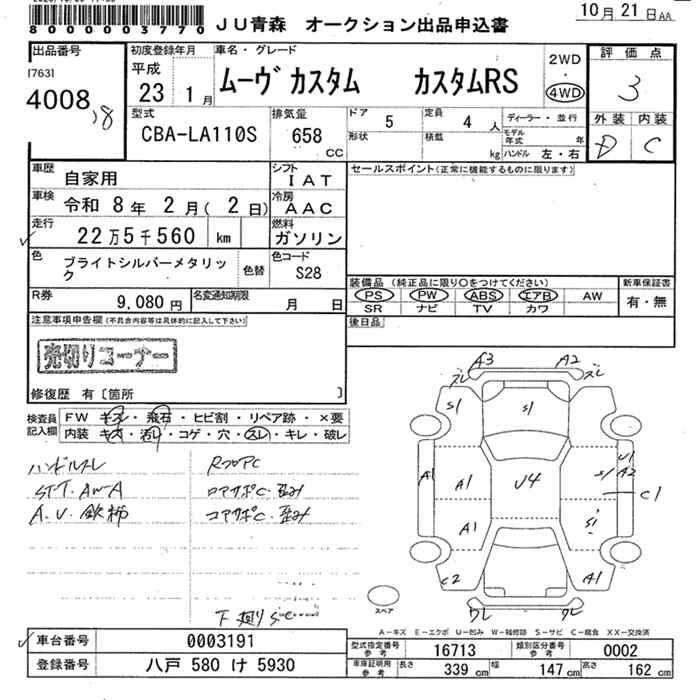 8 0 0 0 0 0 3 7 7 0
JU青森 オークション出品申込書
10月 21日 AA
出品番号
17631
4008
初度登録年月
平成
23 1月
車名・グレード
ムーヴ カスタム カスタムRS
2WD
・
4WD
評価点
3
外装 内装
D C
型式
CBA-LA110S
排気量
658
CC
ドア 5
定員 4 人
形状
積載 kg
ディーラー・並行
モデル年式 年
ハンドル 左・右
車歴
自家用
シフト
IAT
セールスポイント(正常に機能するものに限ります)
車検
令和 8年 2月( 2日)
冷房
AAC
走行
22万5千560 km
燃料
ガソリン
色
ブライトシルバーメタリック
色替
色コード
S28
装備品 (純正品に限り○をつけてください)
PS PW ABS エアB AW
SR ナビ TV カワ
新車保証書
有・無
R券
9,080円
名変通知期限
月 日
後日品
注意事項申告欄(不具合内容等は具体的に記入して下さい)
売切りコーナー
修復歴 有〔箇所 〕
検査員
記入欄
FW キズ・飛石・ヒビ割・リペア跡・×要
内装 キズ・汚レ・コゲ・穴・スレ・キレ・破レ
ハンドルスレ
A3 A2
ズレ ズレ
S1 S1
A1 A1 U4 S1 U1
A2
C1
A1 S1
C2 A1
ワレ ワレ
スペア
下廻り
A-キズ E-エクボ U-凹み W-補修跡 S-サビ C-腐食 XX-交換済
車台番号
0003191
登録番号
八戸 580 け 5930
型式指定番号
参考
16713
類別区分番号
参考
0002
車庫証明用
参考
長さ 339 cm
幅 147 cm
高さ 162 cm